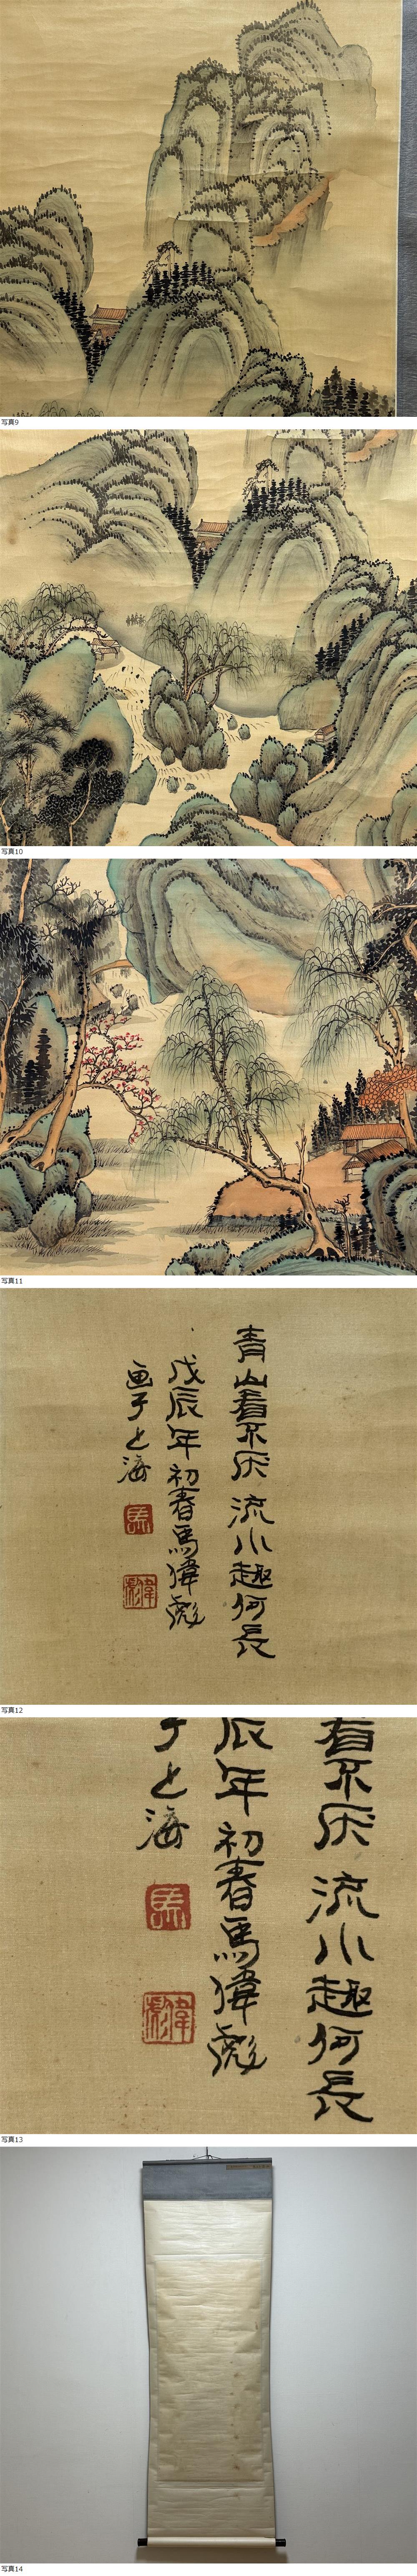 写真9
写真10
写真11
青山看不厌 流水趣何長
戊辰年初春馬偉彪
画于上海
馬
偉彪
写真12
看不厌 流水趣何長
辰年初春馬偉彪
于上海
馬
偉彪
写真13
写真14